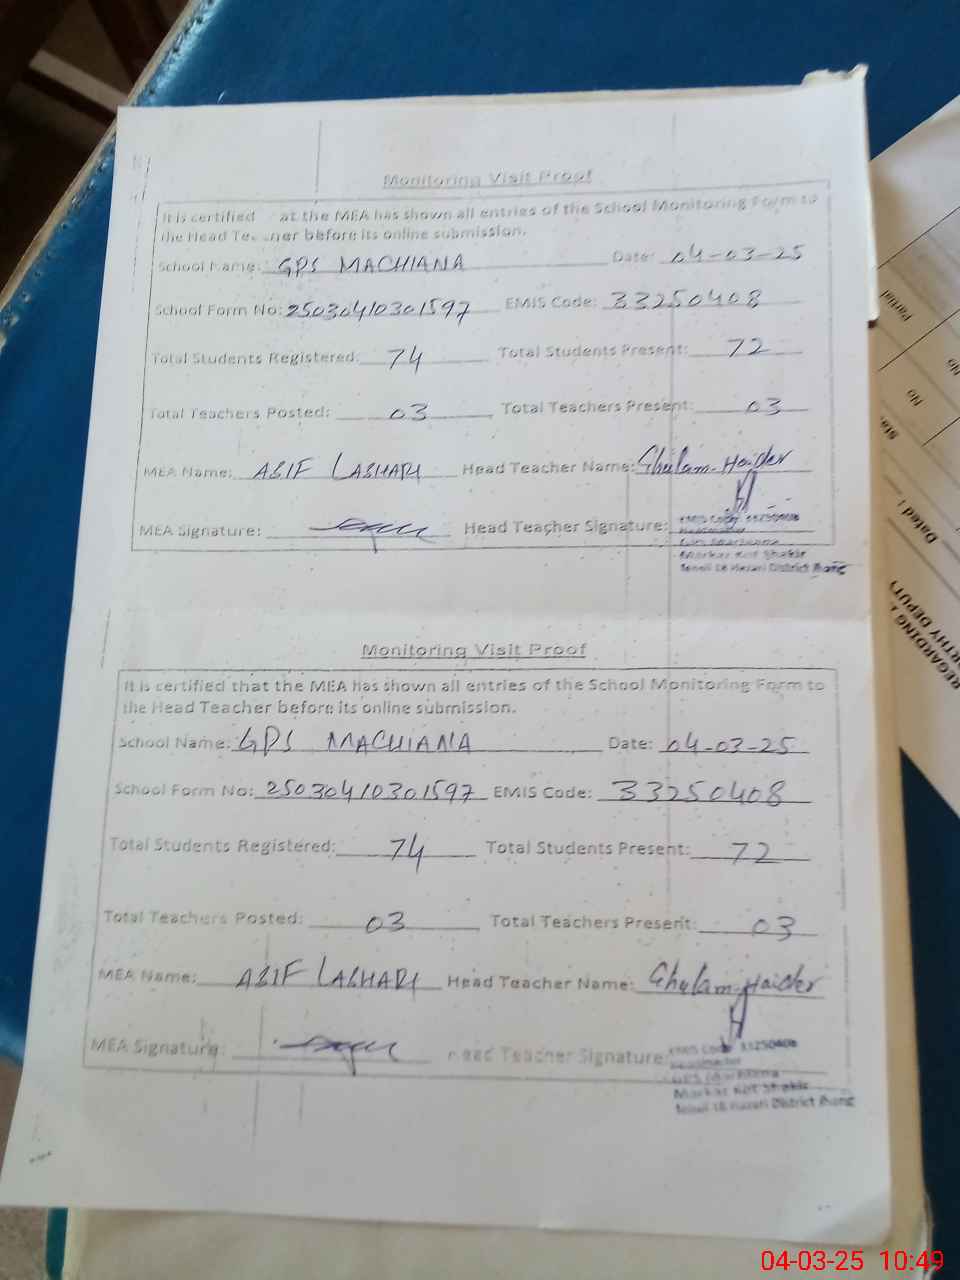 Monitoring Visit Proof
It is certified at the MEA has shown all entries of the School Monitoring Form to
the Head Teacher before its online submission.
School Name: GPS MACHIANA Date: 04-03-25
School Form No: 25030410301597 EMIS Code: 33250408
Total Students Registered: 74 Total Students Present: 72
Total Teachers Posted: 03 Total Teachers Present: 03
MEA Name: ASIF LASHARI Head Teacher Name: Ghulam Haider
MEA Signature: Head Teacher Signature:
EMIS Code 33250408
Headmaster
GPS Machiana
Markaz Kot Shakir
Tehsil 18 Hazari District Jhang
Monitoring Visit Proof
It is certified that the MEA has shown all entries of the School Monitoring Form to
the Head Teacher before its online submission.
School Name: GPS MACHIANA Date: 04-03-25
School Form No: 25030410301597 EMIS Code: 33250408
Total Students Registered: 74 Total Students Present: 72
Total Teachers Posted: 03 Total Teachers Present: 03
MEA Name: ASIF LASHARI Head Teacher Name: Ghulam Haider
MEA Signature: Head Teacher Signature:
EMIS Code 33250408
Headmaster
GPS Machiana
Markaz Kot Shakir
Tehsil 18 Hazari District Jhang
Partial
No
No
Dated :
REGARDING
DEPUTY
04-03-25 10:49